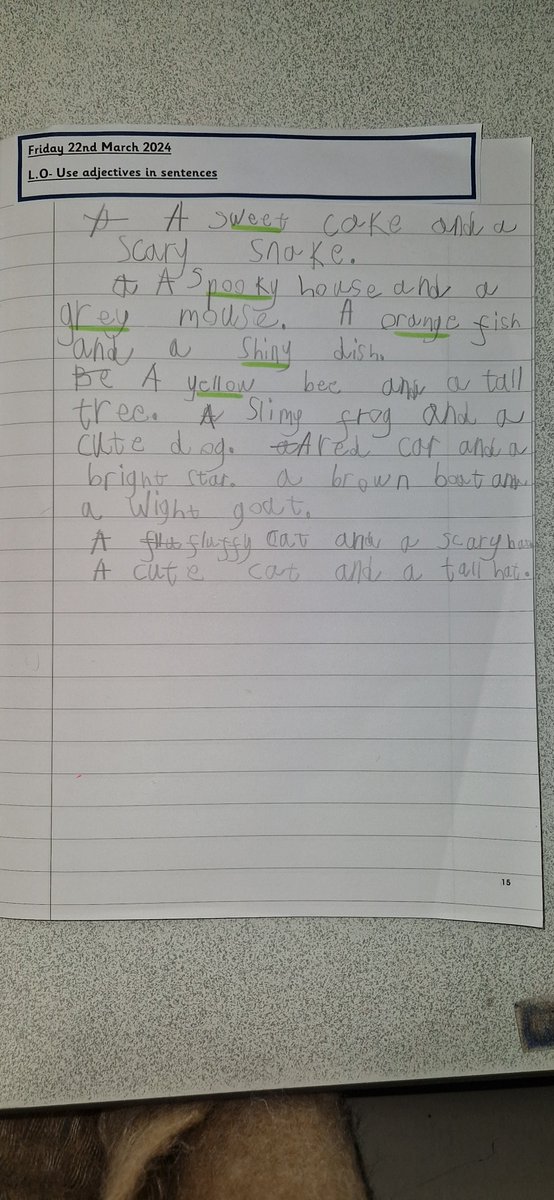 Friday 22nd March 2024
L.O- Use adjectives in sentences
A A sweet cake and a
scary snake.
A A Spooky house and a
grey mouse. A orange fish
and a shiny dish.
Be A yellow bee and a tall
tree. A Slimy frog and a
cute dog. A red car and a
bright star. a brown boat and
a Wight goat.
A fluffy Cat and a scary
A cute cat and a tall hat.
15